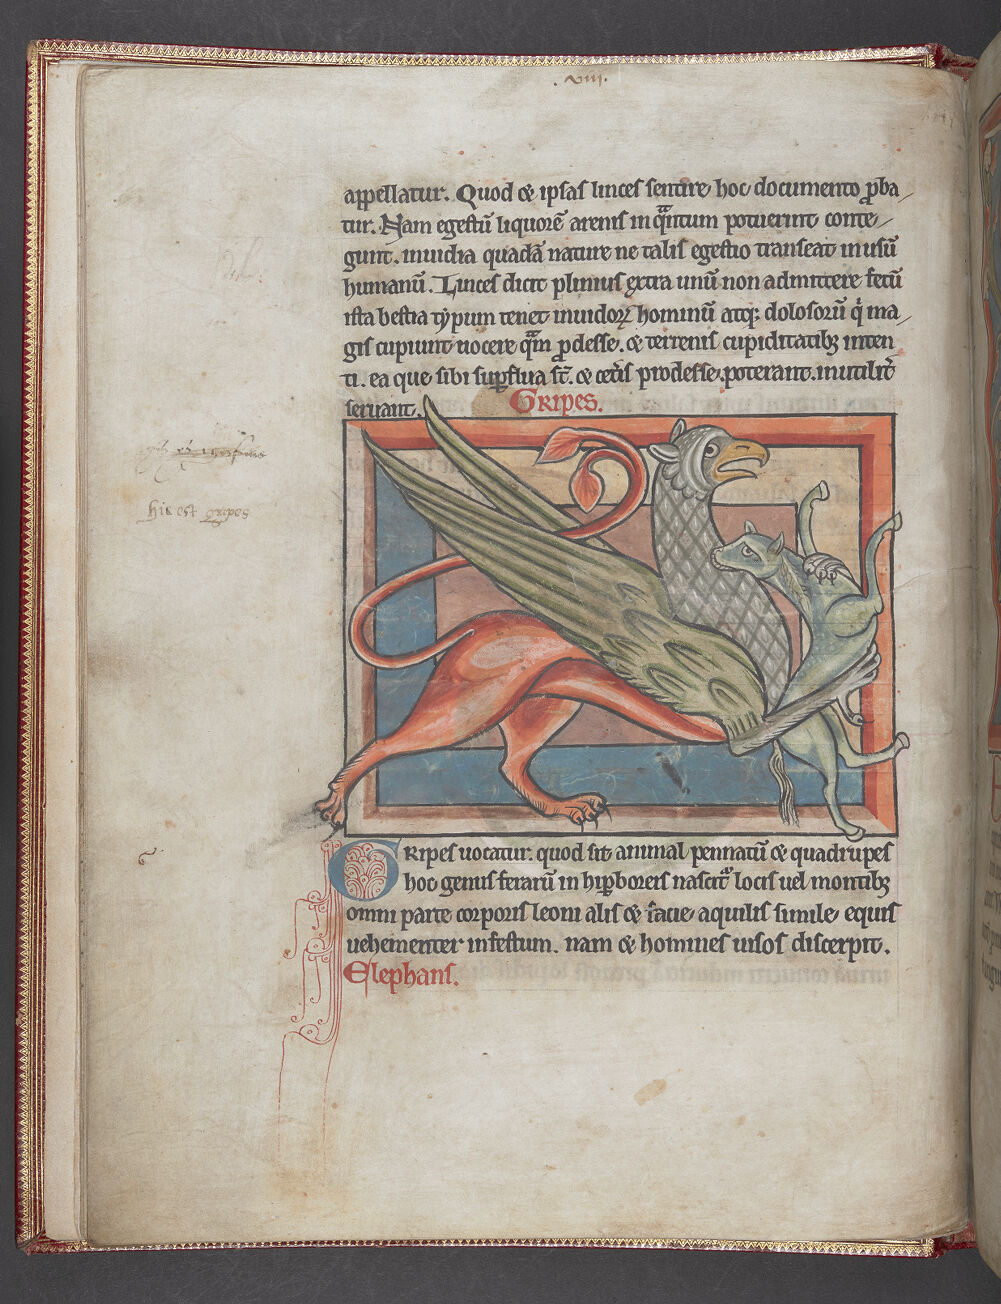 .viii.
appellatur. Quod & ipsas linces sentire hoc documento ꝓba
tur. Nam egestū liquorē arenis in qͣntum potuerint conte
gunt. inuidia quadā nature ne talis egestio transeat in usū
humanū. Linces dicit plinius extra unū non admittere fetū
ista bestia typum tenet inuidoꝝ hominū atq; dolosorū q̇ ma
gis cupiunt nocere qͣm ꝓdesse. & terrenis cupiditatibꝫ inten
ti. ea que sibi suꝑflua st̄. & cet̄is prodesse poterant. inutilit̄
seruant. Gripes.
hic est gripes
Gripes uocatur. quod sit animal pennatū & quadrupes
hoc genus ferarū in hiꝑboreis nascit᷑ locis uel montibꝫ
omni parte corporis leoni alis & facie aquilis simile equis
uehementer infestum. nam & homines uisos discerpit.
Elephans.